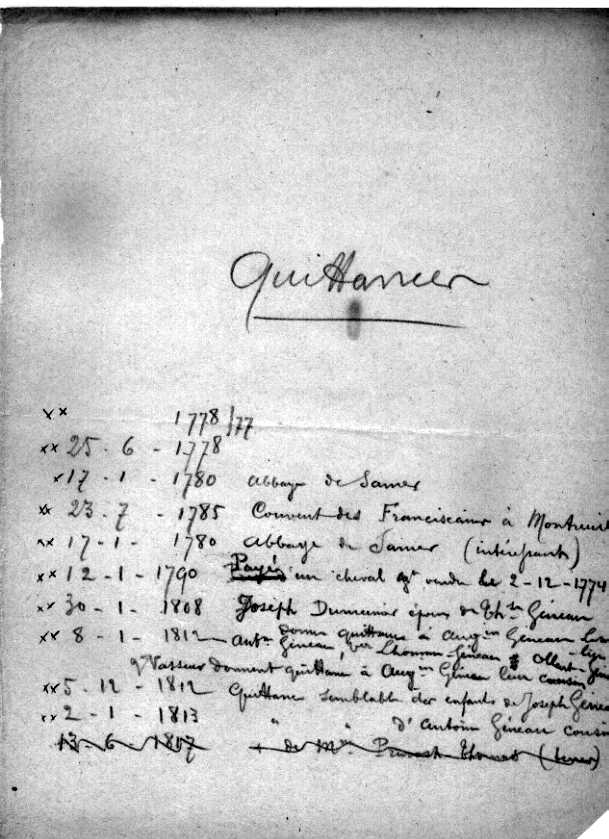 Quittances
xx 1778/77
xx 25 - 6 - 1778
x 17 - 1 - 1780 Abbaye de Samer
xx 23 - 7 - 1785 Couvent des Franciscains à Montreuil
xx 17 - 1 - 1780 Abbaye de Samer (intéressant)
xx 12 - 1 - 1790 Payé un cheval vendu le 2-12-1774
xx 30 - 1 - 1808 Joseph Dumesnir époux de Th. Géneau
xx 8 - 1 - 1812 - Ant. donne quittance à Aug.in Géneau
Géneau, Lhomme-Géneau Ollart-
Vasseur donnent quittance à Aug.in Géneau leur cousin
xx 5 - 12 - 1812 Quittance semblable des enfants de Joseph Géneau
xx 2 - 1 - 1813 " " d'Antoine Géneau cousin
13 - 6 - 1817 + de Prevost-Thomas